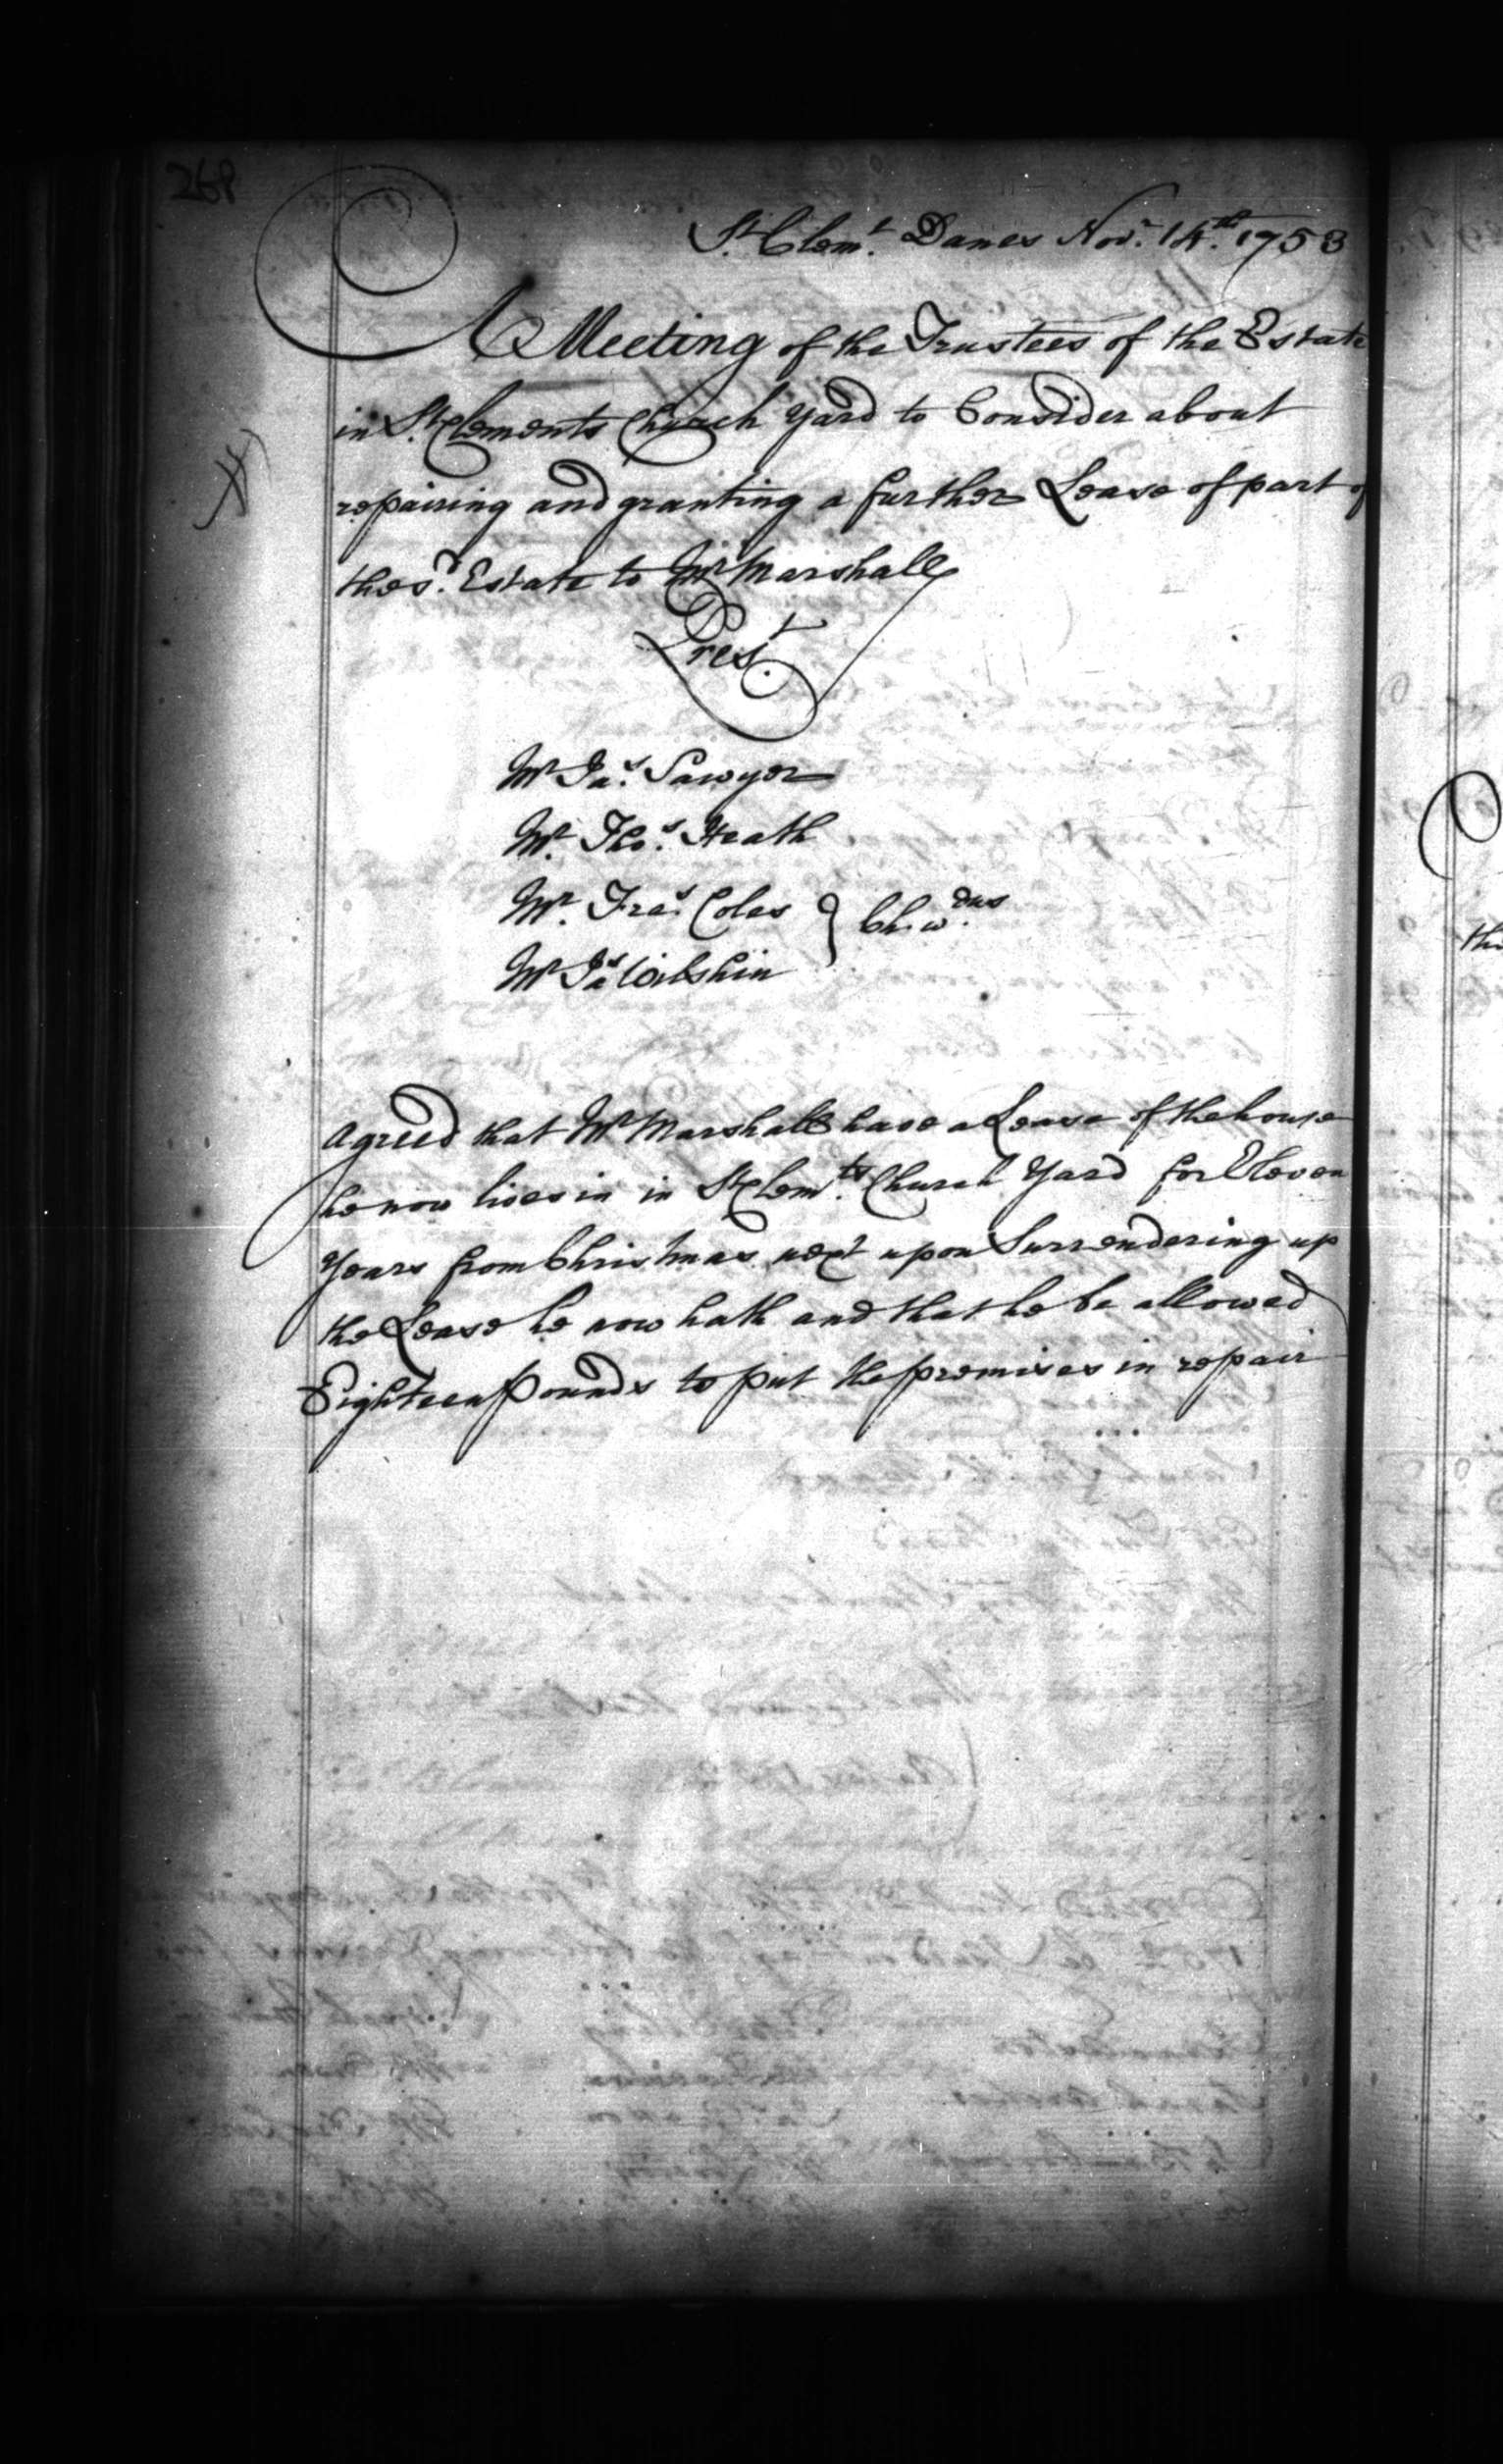 268
St. Clemt. Danes Novr. 14th. 1753
A Meeting of the Trustees of the Estate
in St. Clements Church Yard to Consider about
repairing and granting a further Lease of part of
the sd. Estate to Mr Marshall
Prest.
Mr Jas. Sawyer
Mr. Thos. Heath
Mr. Fras. Coles } Ch.wdns.
Mr Jas Wilshin
Agreed that Mr Marshall have a Lease of the house
he now lives in in St Clemts. Church Yard for Eleven
Years from Christmas next upon Surrendering up
the Lease he now hath and that he be allowed
Eighteen Pounds to put the premises in repair